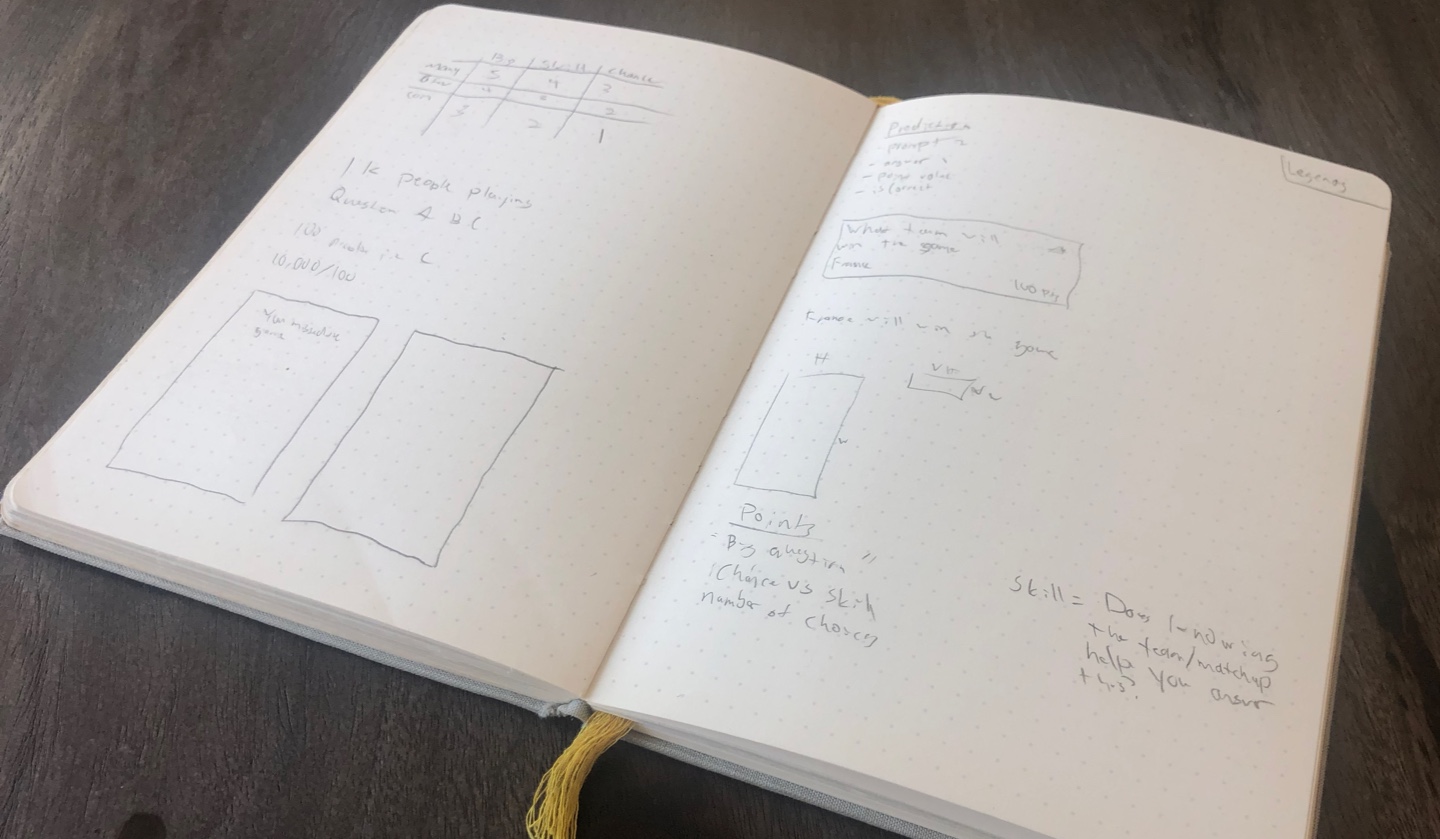 Big Skill Chance
Many 5 4 3
2
Com 3 2 1
1k people playing
Question A B C
100 people pick C
10,000/100
You
game
Legends
Prediction
- prompt
- answer
- point value
- is correct
What team will
win the game
France
100 pts
France will win the game
H
W
Points
- Big question
Chance vs Skill
number of choices
Skill = Does knowing
the team/matchup
help you answer
this?